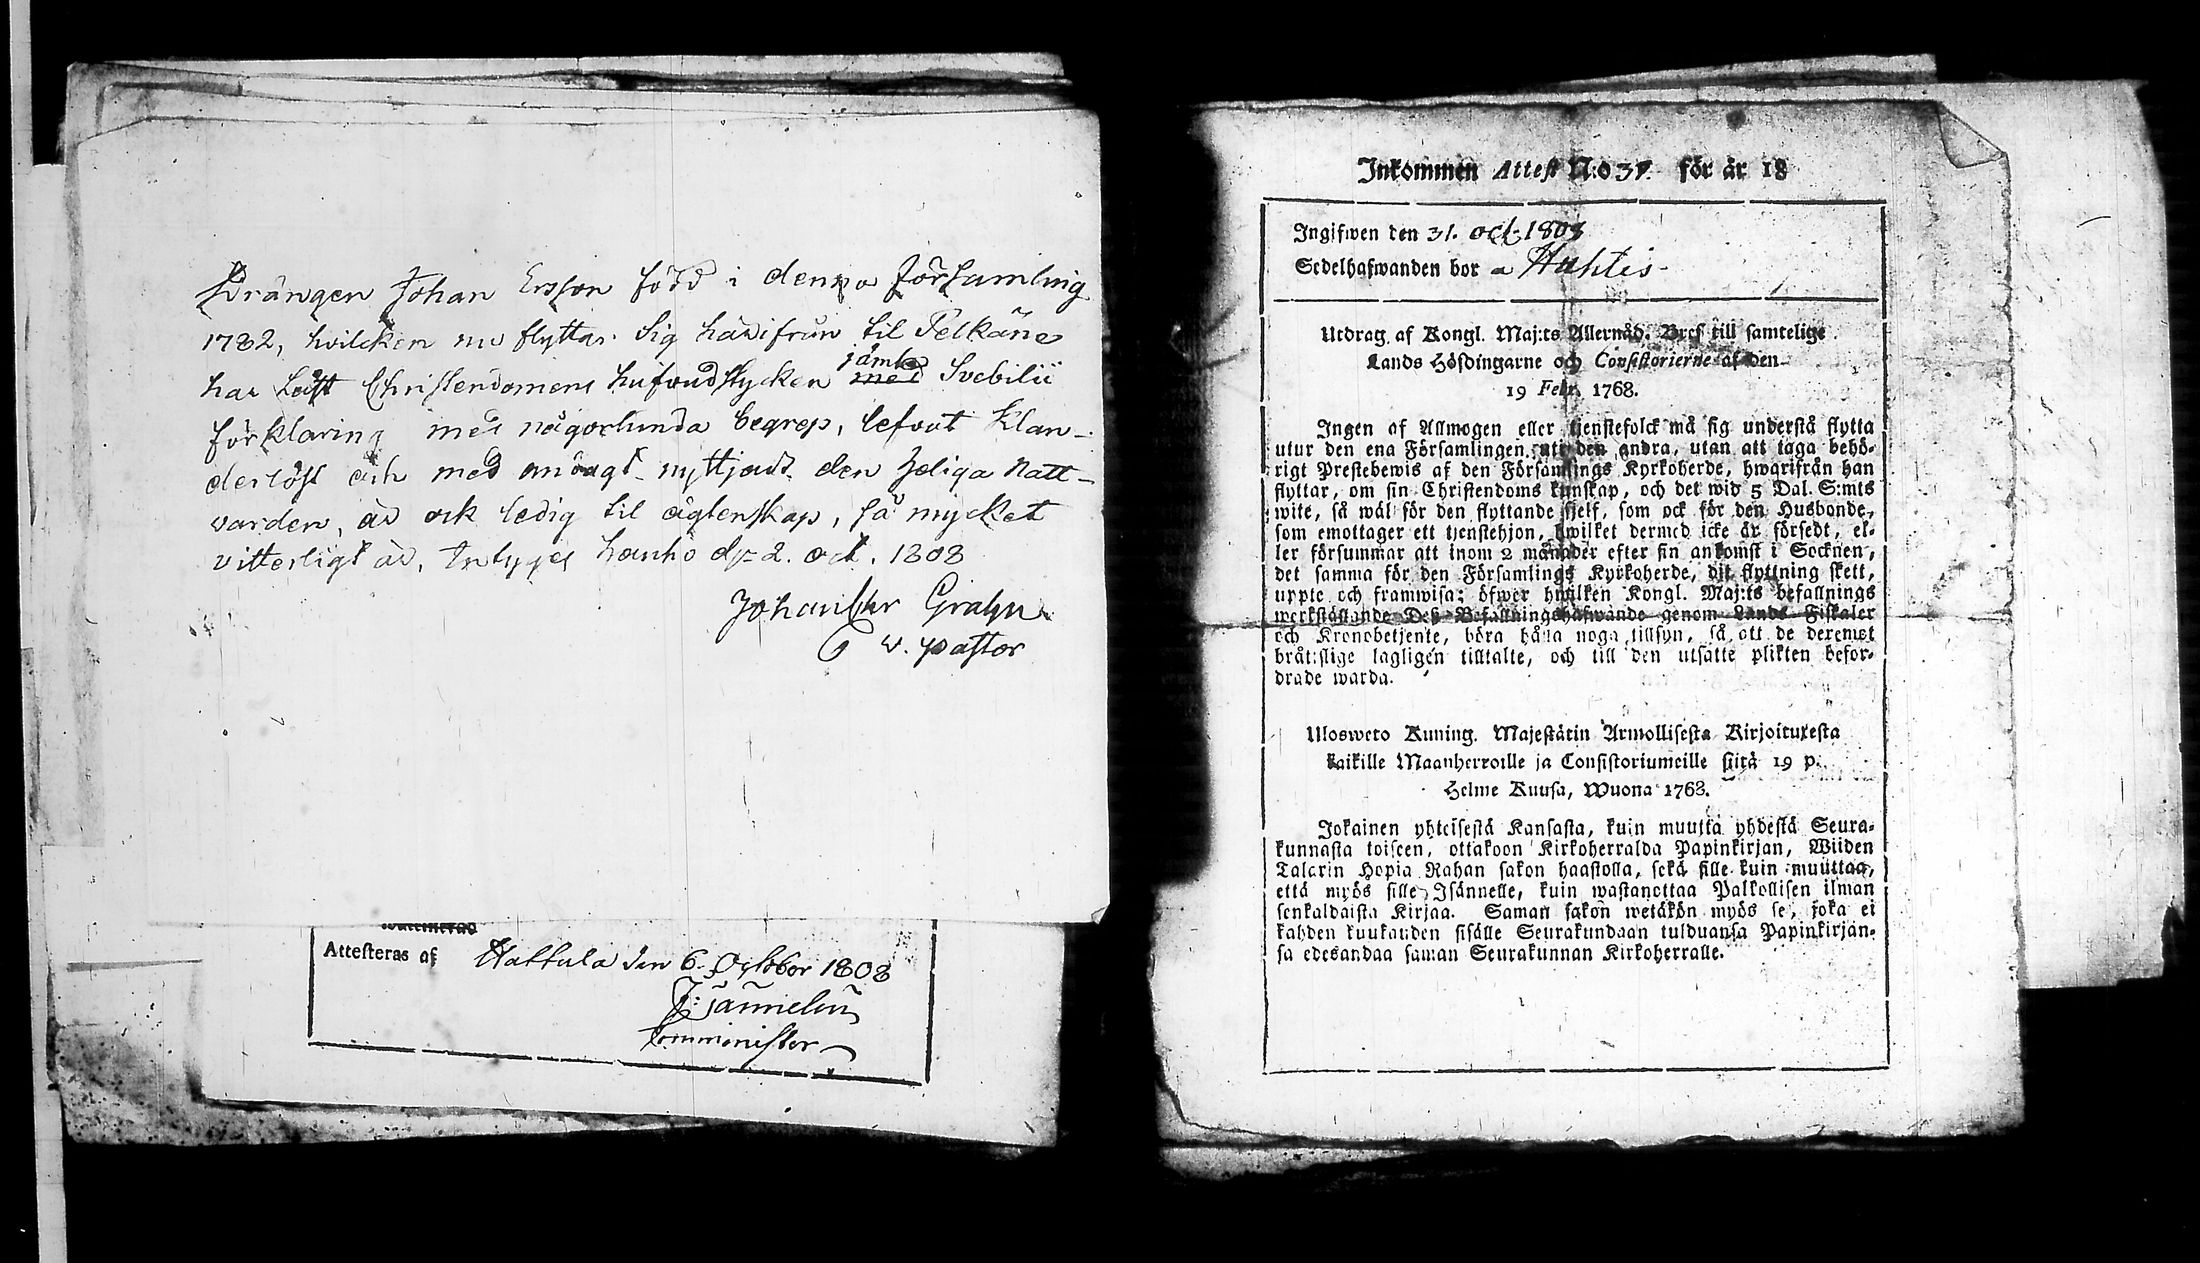 Drängen Johan Ersson född i denna församling
1782, hvilcken nu flyttar sig härifrån til Pelkäne
har Läst Christendomens hufvudstycken jämte Svebilii
förklaring med någorlunda begrep, lefvat klan-
derlöst och med andagt nyttjadt den heliga Natt-
varden, är ock ledig til ägtenskap, så mycket
vitterligt är, Intyges Hauho d. 2. oct. 1808
Johan Chr Grahn
v. pastor
Attesteras af Hattula den 6. October 1808
Comminister
Inkommen Attest N:o 37. för år 18
Ingifwen den 31. oct. 1808
Sedelhafwanden bor a Hahtis
Utdrag af Kongl. Maj:ts Allernåd. Bref till samtelige
Lands Höfdingarne och Consistorierne af den
19 Febr. 1768.
Ingen af Allmogen eller tjenstefolck må sig understå flytta
utur den ena Församlingen uti den andra, utan att taga behö-
rigt Prestebewis af den Församlings Kyrkoherde, hwarifrån han
flyttar, om sin Christendoms kunskap, och det wid 5 Dal. S:mts
wite, så wäl för den flyttande sjelf, som ock för den Husbonde,
som emottager ett tjenstehjon, hwilket dermed icke är försedt, el-
ler försummar att inom 2 månader efter sin ankomst i Socknen,
det samma för den Församlings Kyrkoherde, dit flyttning skett,
uppte och framwisa; öfwer hwilken Kongl. Maj:ts befallnings
werkställande Deß Befallningshafwande genom Lands Fiskaler
och Kronobetjente, böra hålla noga tillsyn, så att de deremot
bråtslige lagligen tilltalte, och till den utsatte plikten befor-
drade warda.
Ulosweto Kuning. Majestätin Armollisesta Kirjoituxesta
kaikille Maanherroille ja Consistoriumeille siitä 19 p.
Helme Kuusa, Wuona 1768.
Jokainen yhteisestä Kansasta, kuin muutta yhdestä Seura-
kunnasta toiseen, ottakoon Kirkoherralda Papinkirjan, Wiiden
Talarin Hopia Rahan sakon haastolla, sekä sille kuin muuttaa,
että myös sille Isännelle, kuin wastanottaa Palkollisen ilman
senkaldaista Kirjaa. Saman sakon wetäkön myös se, joka ei
kahden kuukauden sisälle Seurakundaan tulduansa Papinkirjan-
sa edesandaa saman Seurakunnan Kirkoherralle.